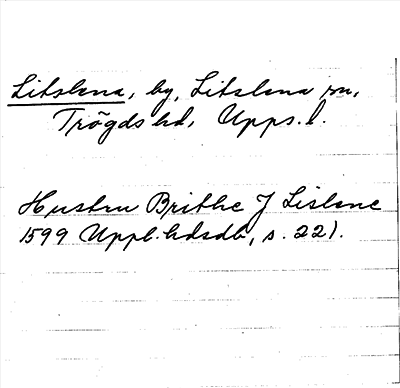 Litslena, by, Litslena sn,
Trögds hd, Upps. l.
Hustru Brithe J Lislene
1599 Uppl. hdsdb, s. 221.